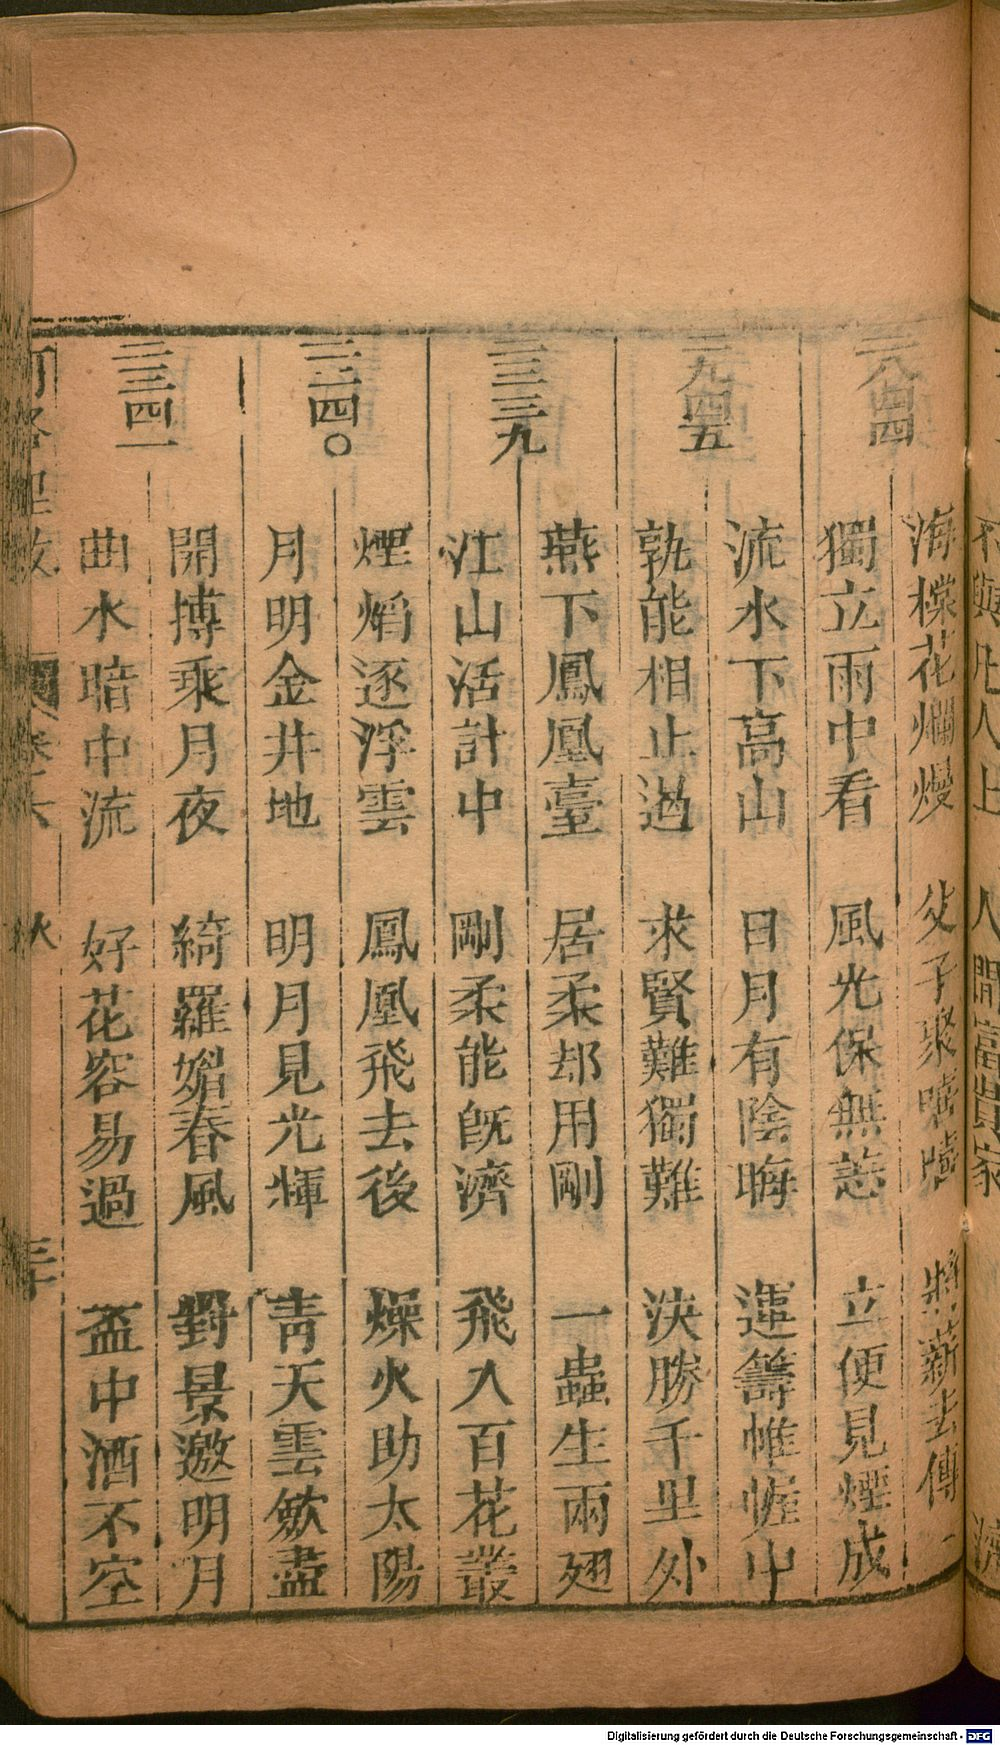 人間富貴家
八四四
海棠花爛熳　父子聚　去傳一
獨立雨中看　風光保無恙　立便見煙成
二九四五
流水下高山　日月有陰晦　運籌帷幄中
孰能相止遏　求賢難獨難　決勝千里外
三三三九
燕下鳳凰臺　居柔却用剛　一蟲生兩翅
江山活計中　剛柔能既濟　飛入百花叢
三三四〇
煙焰逐浮雲　鳳凰飛去後　燥火助太陽
月明金井地　明月見光輝　青天雲斂盡
三三四一
開搏乘月夜　綺羅媚春風　對景邀明月
曲水暗中流　好花容易過　盃中酒不空
三十
Digitalisierung gefördert durch die Deutsche Forschungsgemeinschaft - DFG